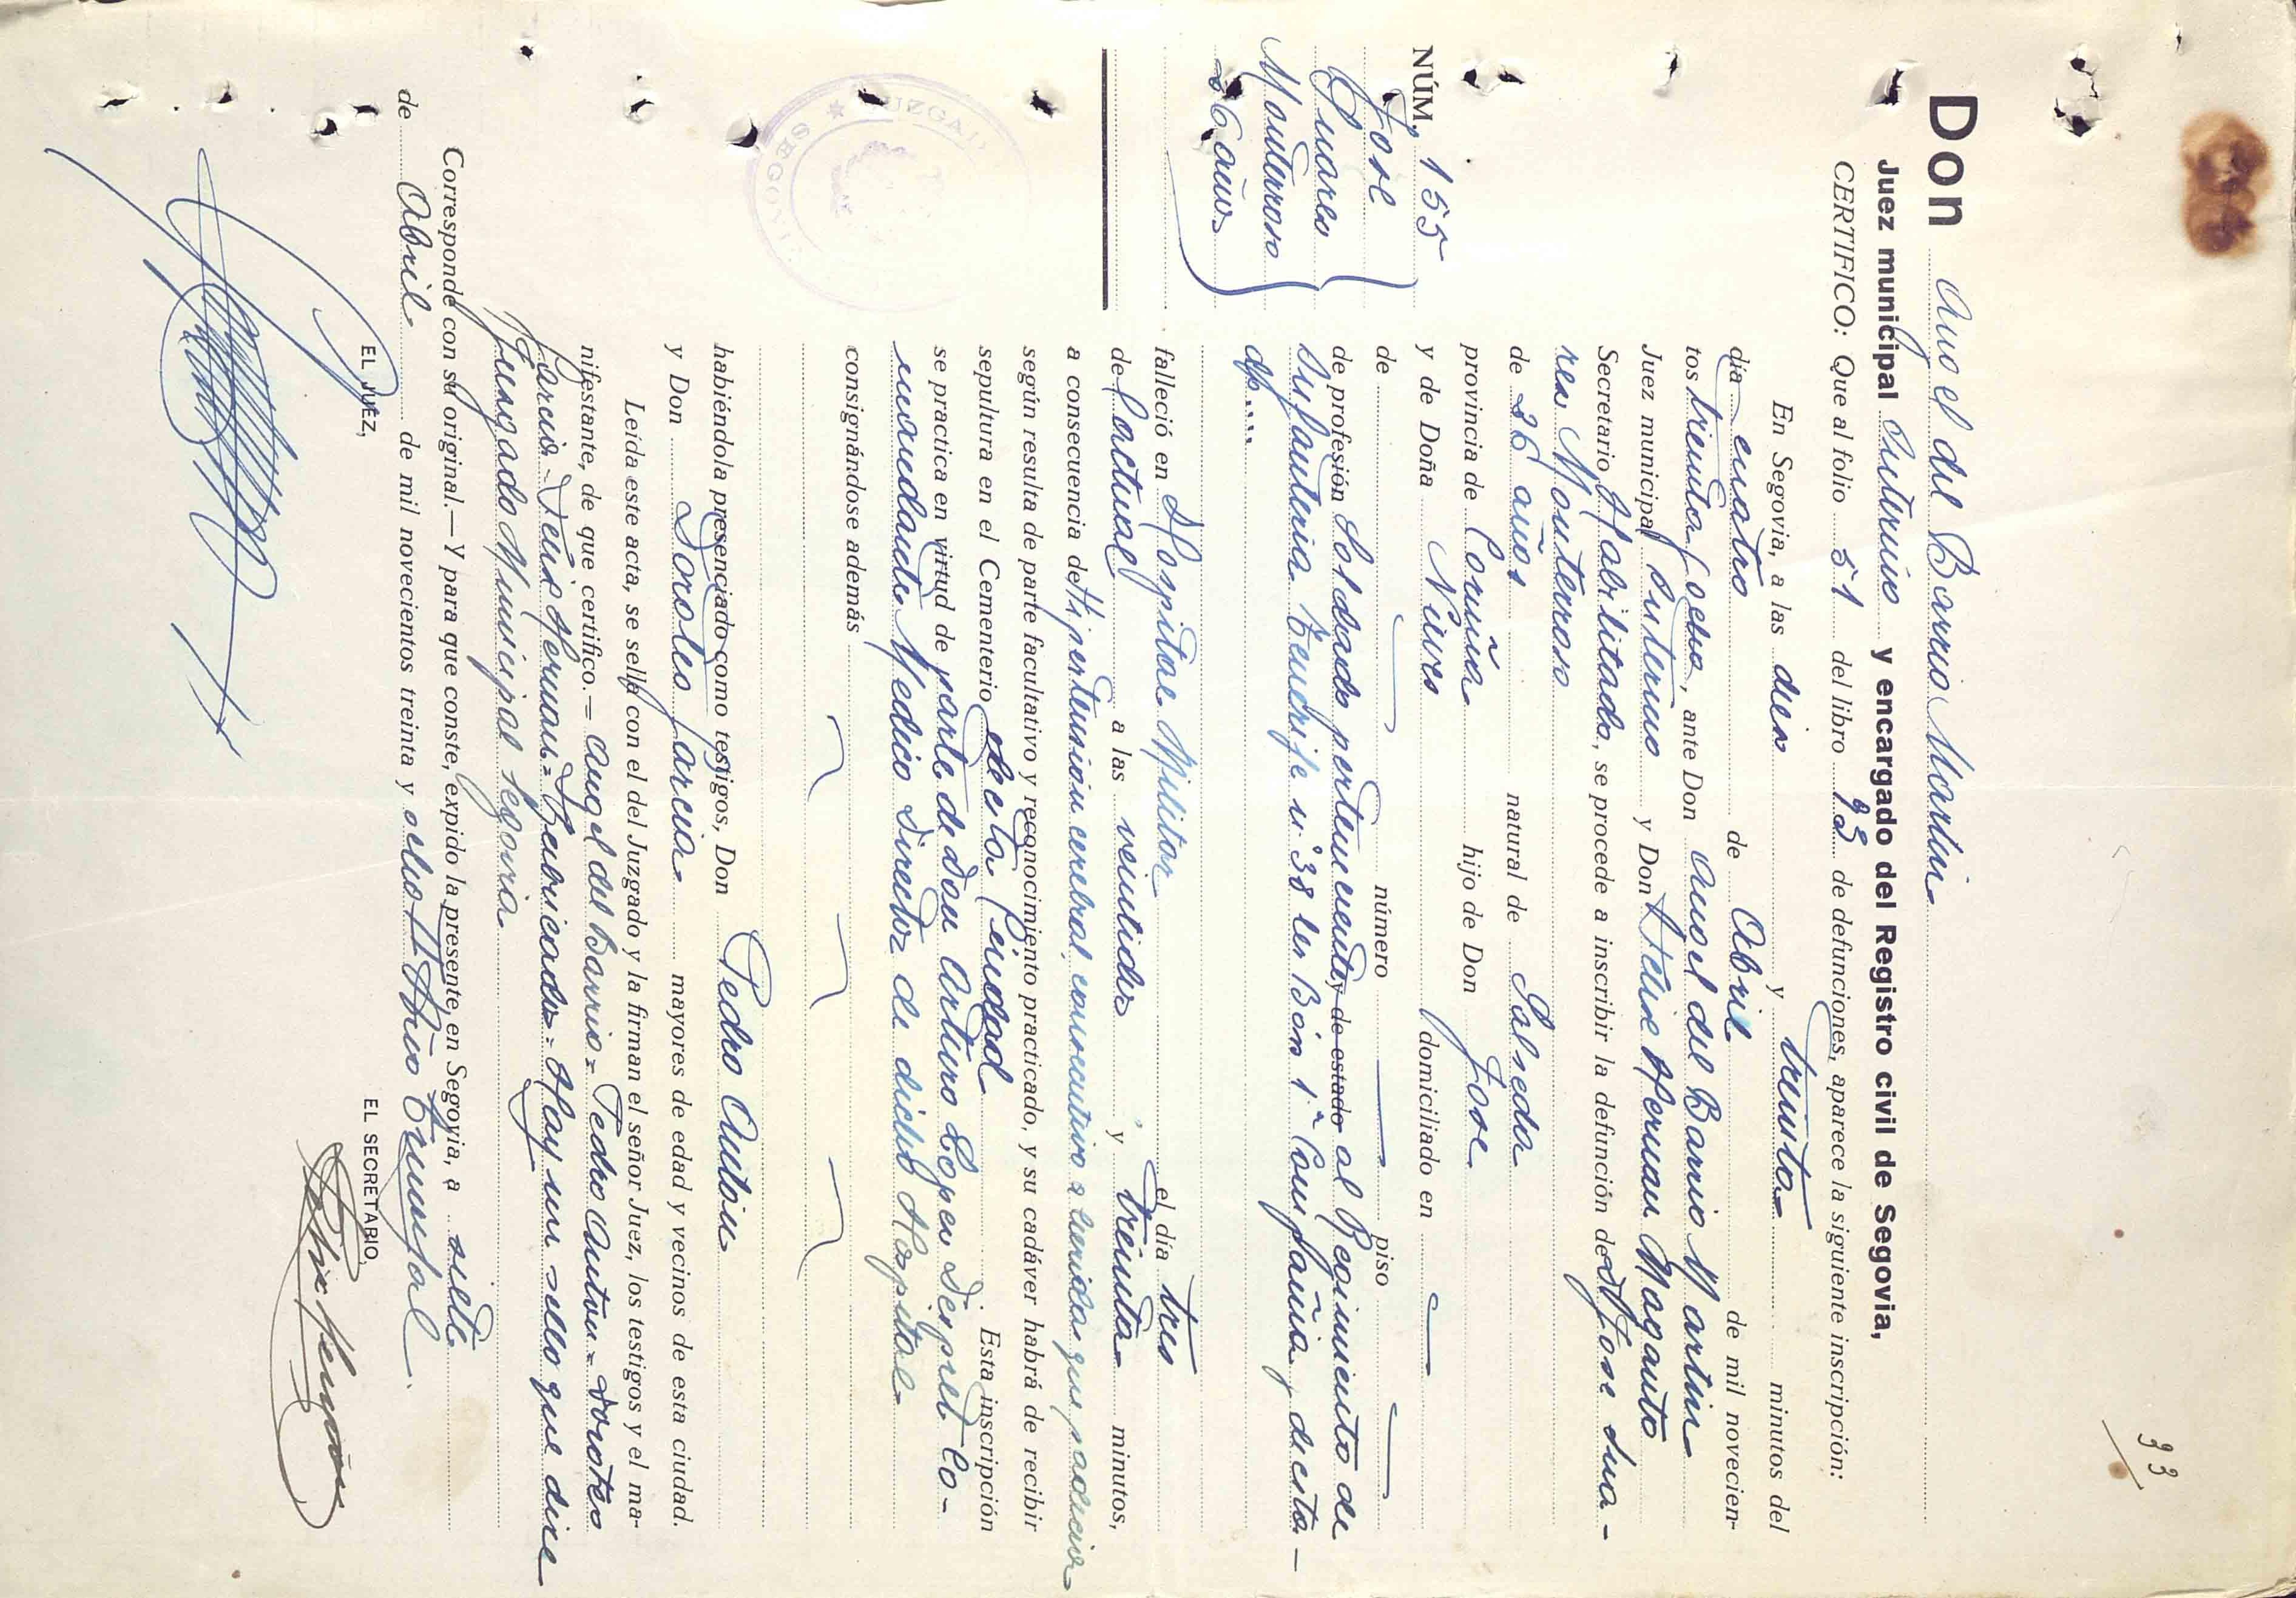 33
Don Angel del Barrio Martin
Juez municipal Interino y encargado del Registro civil de Segovia,
CERTIFICO: Que al folio 51 del libro 93 de defunciones, aparece la siguiente inscripción:
NÚM. 155
Jose
Suarez
Monteroso
26 años
En Segovia, a las diez y treinta minutos del
día cuatro de Abril de mil novecien-
tos treinta y ocho, ante Don Angel del Barrio Martin
Juez municipal Interino y Don Felix Herman Maganto
Secretario Habilitado, se procede a inscribir la defunción de Jose Sua-
rez Monteroso
de 26 años natural de Salseda
provincia de Coruña hijo de Don Jose
y de Doña Nieves domiciliado en
de número piso
de profesión Soldado perteneciente y de estado al Regimiento de
Infanteria Tenerife nº 38 er Bon 1ª Compañia, de esta-
do....
falleció en Hospital Militar el día tres
de l'actual a las veintidos y treinta minutos,
a consecuencia de Hipertension cerebral consecutivo a heridas que padecia
según resulta de parte facultativo y reconocimiento practicado, y su cadáver habrá de recibir
sepultura en el Cementerio de esta Ciudad Esta inscripción
se practica en virtud de parte de Don Arturo Lopez Despret Co-
mandante Medico Director de dicho Hospital
consignándose además
habiéndola presenciado como testigos, Don Pedro Anton
y Don Doroteo Garcia mayores de edad y vecinos de esta ciudad.
Leída este acta, se sella con el del Juzgado y la firman el señor Juez, los testigos y el ma-
nifestante, de que certifico.= Angel del Barrio= Pedro Anton= Doroteo
Garcia= Felix Herman= Rubricados= Hay un sello que dice
Juzgado Municipal Segovia
Corresponde con su original.—Y para que conste, expido la presente en Segovia, a siete
de Abril de mil novecientos treinta y ocho II Año Triunfal.
EL JUEZ,
EL SECRETARIO,
JUZGADO
SEGOVIA